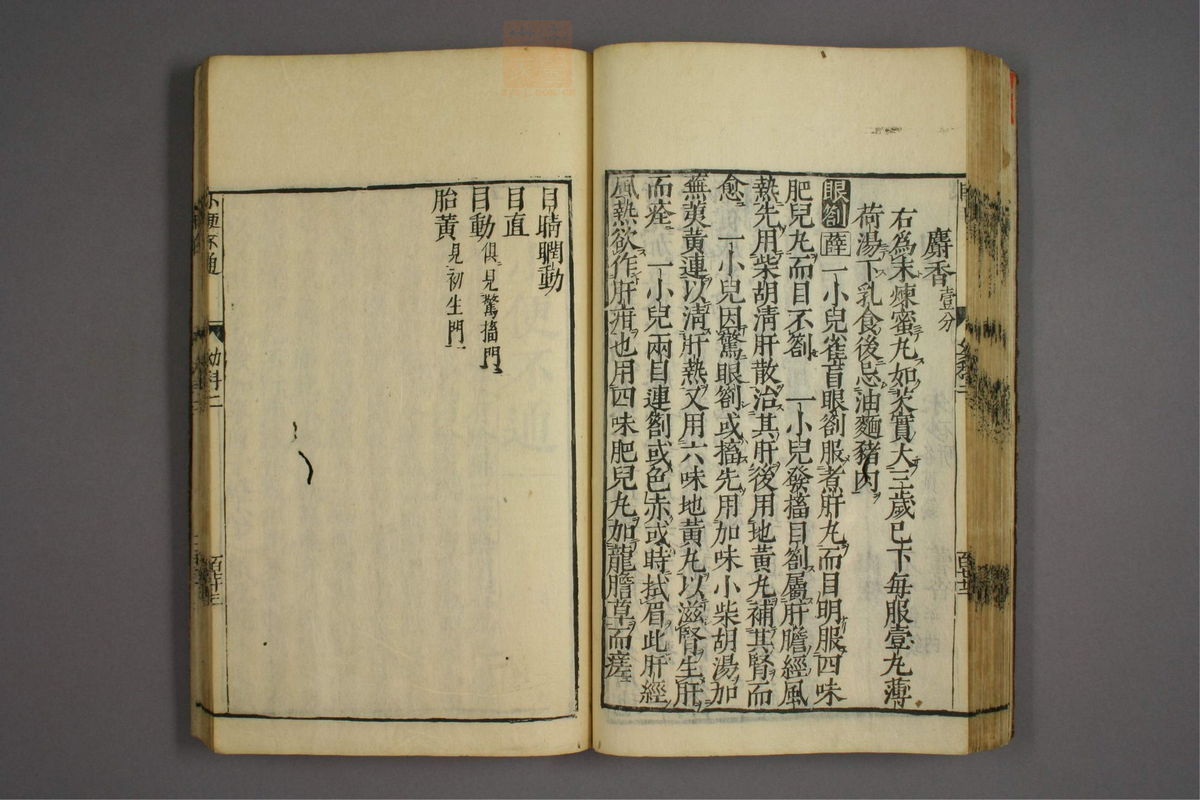 麝香壹分
右為末煉蜜丸如芡實大三歲已下每服壹丸薄
荷湯下乳食後忌油麵豬肉
眼劄薛一小兒雀盲眼劄服煮肝丸而目明服四味
肥兒丸而目不劄 一小兒發搐目劄屬肝膽經風
熱先用柴胡清肝散治其肝後用地黃丸補其腎而
愈 一小兒因驚眼劄或搐先用加味小柴胡湯加
蕪荑黃連以清肝熱又用六味地黃丸以滋腎生肝
而痊 一小兒兩目連劄或色赤或時拭眉此肝經
風熱欲作肝疳也用四味肥兒丸加龍膽草而瘥
目睛瞤動
目直
目動俱見驚搐門
胎黃見初生門
小便不通
幼科二